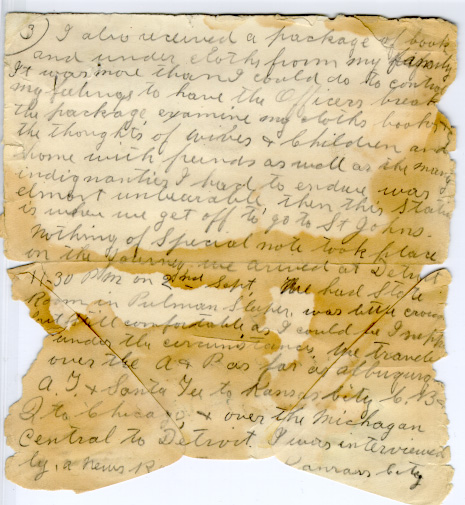 3) I also received a package of book
and under cloths from my family
It was more than I could do to control
my feelings to have the Officers break
the package examine my cloths books &
the thoughts of wives & Children and
home with freinds as well as the many
indignanties I had to endure was
elmost unbearable then this State
is where we get off to go to St Johns.
Nothing of Special note took place
on the Journey we arrived at Detroit
11-30 PM on 22nd Sept We had State
Room in Pulman Sleeper was little crow
but still comfortable as I could be I supp
under the circumstances, We travele
over the A & P as far as albuquerq
A. T & Santa Fee to Kansas City C. B &
Q to Chicago, & over the Michagan
Central to Detroit I was interviewed
by, a News R Kansas City